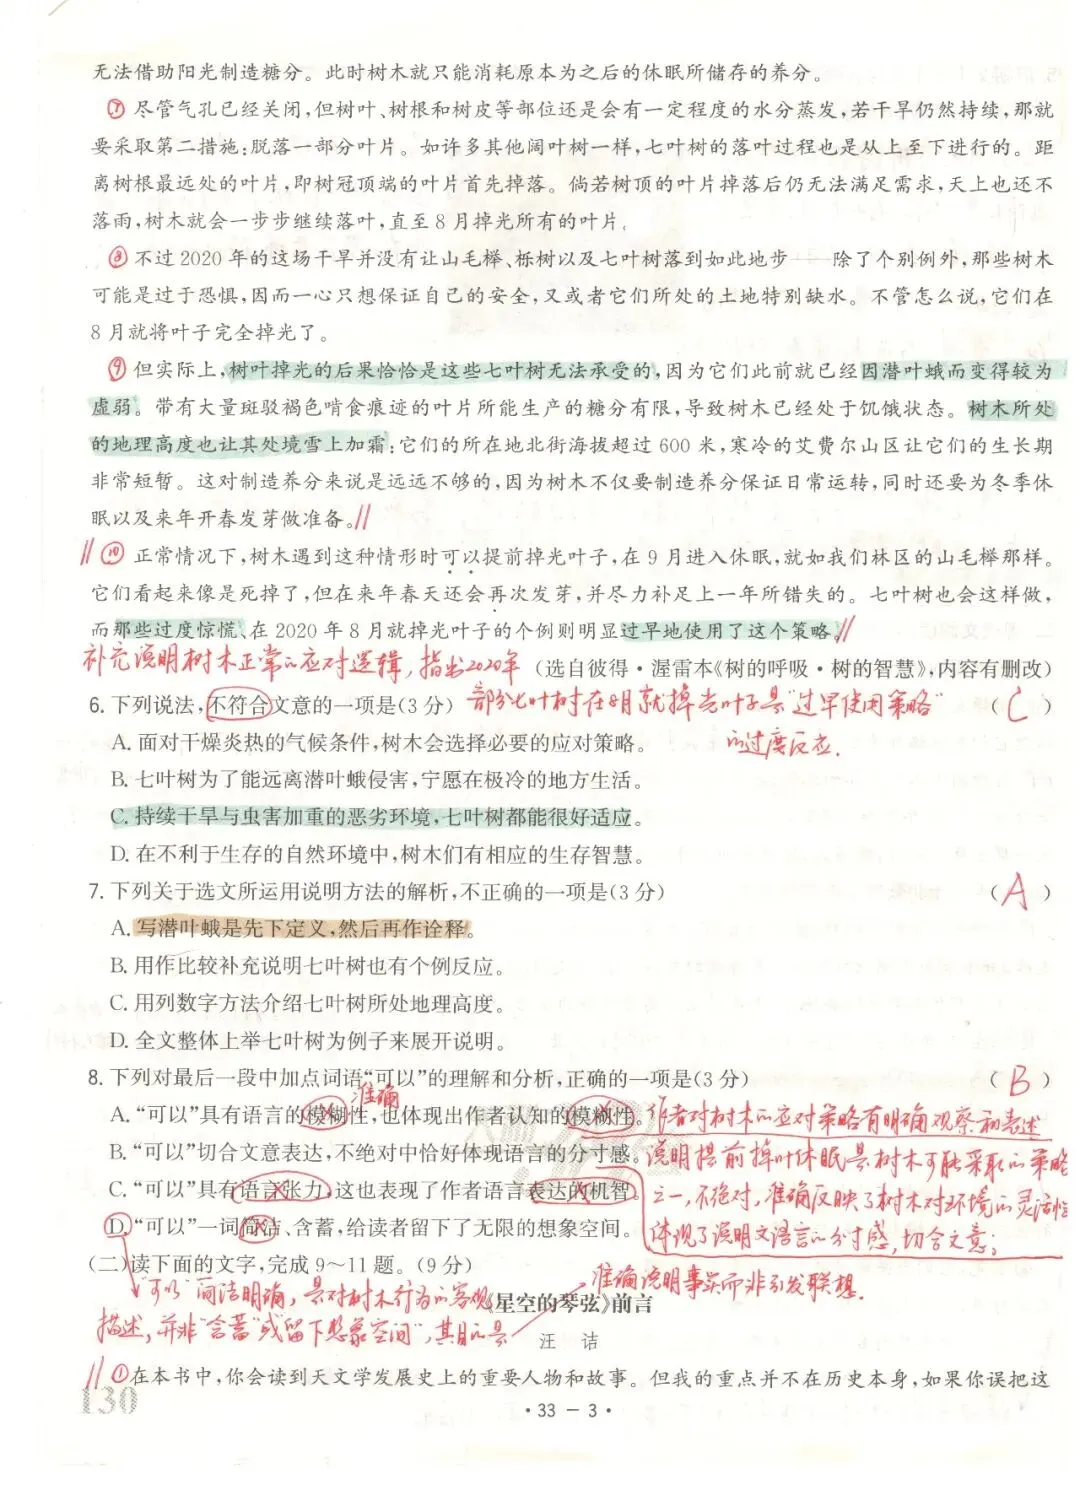 无法借助阳光制造糖分。此时树木就只能消耗原本为之后的休眠所储存的养分。
⑦尽管气孔已经关闭,但树叶、树根和树皮等部位还是会有一定程度的水分蒸发,若干旱仍然持续,那就
要采取第二措施:脱落一部分叶片。如许多其他阔叶树一样,七叶树的落叶过程也是从上至下进行的。距
离树根最远处的叶片,即树冠顶端的叶片首先掉落。倘若树顶的叶片掉落后仍无法满足需求,天上也还不
落雨,树木就会一步步继续落叶,直至8月掉光所有的叶片。
⑧不过2020年的这场干旱并没有让山毛榉、栎树以及七叶树落到如此地步——除了个别例外,那些树木
可能是过于恐惧,因而一心只想保证自己的安全,又或者它们所处的土地特别缺水。不管怎么说,它们在
8月就将叶子完全掉光了。
⑨但实际上,树叶掉光的后果恰恰是这些七叶树无法承受的,因为它们此前就已经因潜叶蛾而变得较为
虚弱。带有大量斑驳褐色啃食痕迹的叶片所能生产的糖分有限,导致树木已经处于饥饿状态。树木所处
的地理高度也让其处境雪上加霜:它们的所在地北街海拔超过600米,寒冷的艾费尔山区让它们的生长期
非常短暂。这对制造养分来说是远远不够的,因为树木不仅要制造养分保证日常运转,同时还要为冬季休
眠以及来年开春发芽做准备。//
//⑩正常情况下,树木遇到这种情形时可以提前掉光叶子,在9月进入休眠,就如我们林区的山毛榉那样。
它们看起来像是死掉了,但在来年春天还会再次发芽,并尽力补足上一年所错失的。七叶树也会这样做,
而那些过度惊慌、在2020年8月就掉光叶子的个例则明显过早地使用了这个策略。//
补充说明树木正常的应对逻辑,指出2020年(选自彼得·渥雷本《树的呼吸·树的智慧》,内容有删改)
6.下列说法,不符合文意的一项是(3分)部分七叶树在8月就掉光叶子是“过早使用策略”(C)
A.面对干燥炎热的气候条件,树木会选择必要的应对策略。的过度反应.
B.七叶树为了能远离潜叶蛾侵害,宁愿在极冷的地方生活。
C.持续干旱与虫害加重的恶劣环境,七叶树都能很好适应。
D.在不利于生存的自然环境中,树木们有相应的生存智慧。
7.下列关于选文所运用说明方法的解析,不正确的一项是(3分)(A)
A.写潜叶蛾是先下定义,然后再作诠释。
B.用作比较补充说明七叶树也有个例反应。
C.用列数字方法介绍七叶树所处地理高度。
D.全文整体上举七叶树为例子来展开说明。
8.下列对最后一段中加点词语“可以”的理解和分析,正确的一项是(3分)(B)
准确
A.“可以”具有语言的模糊性,也体现出作者认知的模糊性。作者对树木的应对策略有明确观察和表述
B.“可以”切合文章表达,不绝对中恰好体现语言的分寸感。说明提前掉叶休眠是树木可能采取的策略
C.“可以”具有语言张力,这也表现了作者语言表达的机智。之一,不绝对,准确反映了树木对环境的灵活性
D.“可以”一词简洁、含蓄,给读者留下了无限的想象空间。体现了说明文语言的分寸感,切合文意;
(二)读下面的文字,完成9~11题。(9分)准确说明事实而非引发联想.
“可以”简洁明确,是对树木行为的客观《星空的琴弦》前言
描述,并非“含蓄”或“留下想象空间”,其目的是
汪 诘
//①在本书中,你会读到天文学发展史上的重要人物和故事。但我的重点并不在历史本身,如果你误把这
130
·33-3·